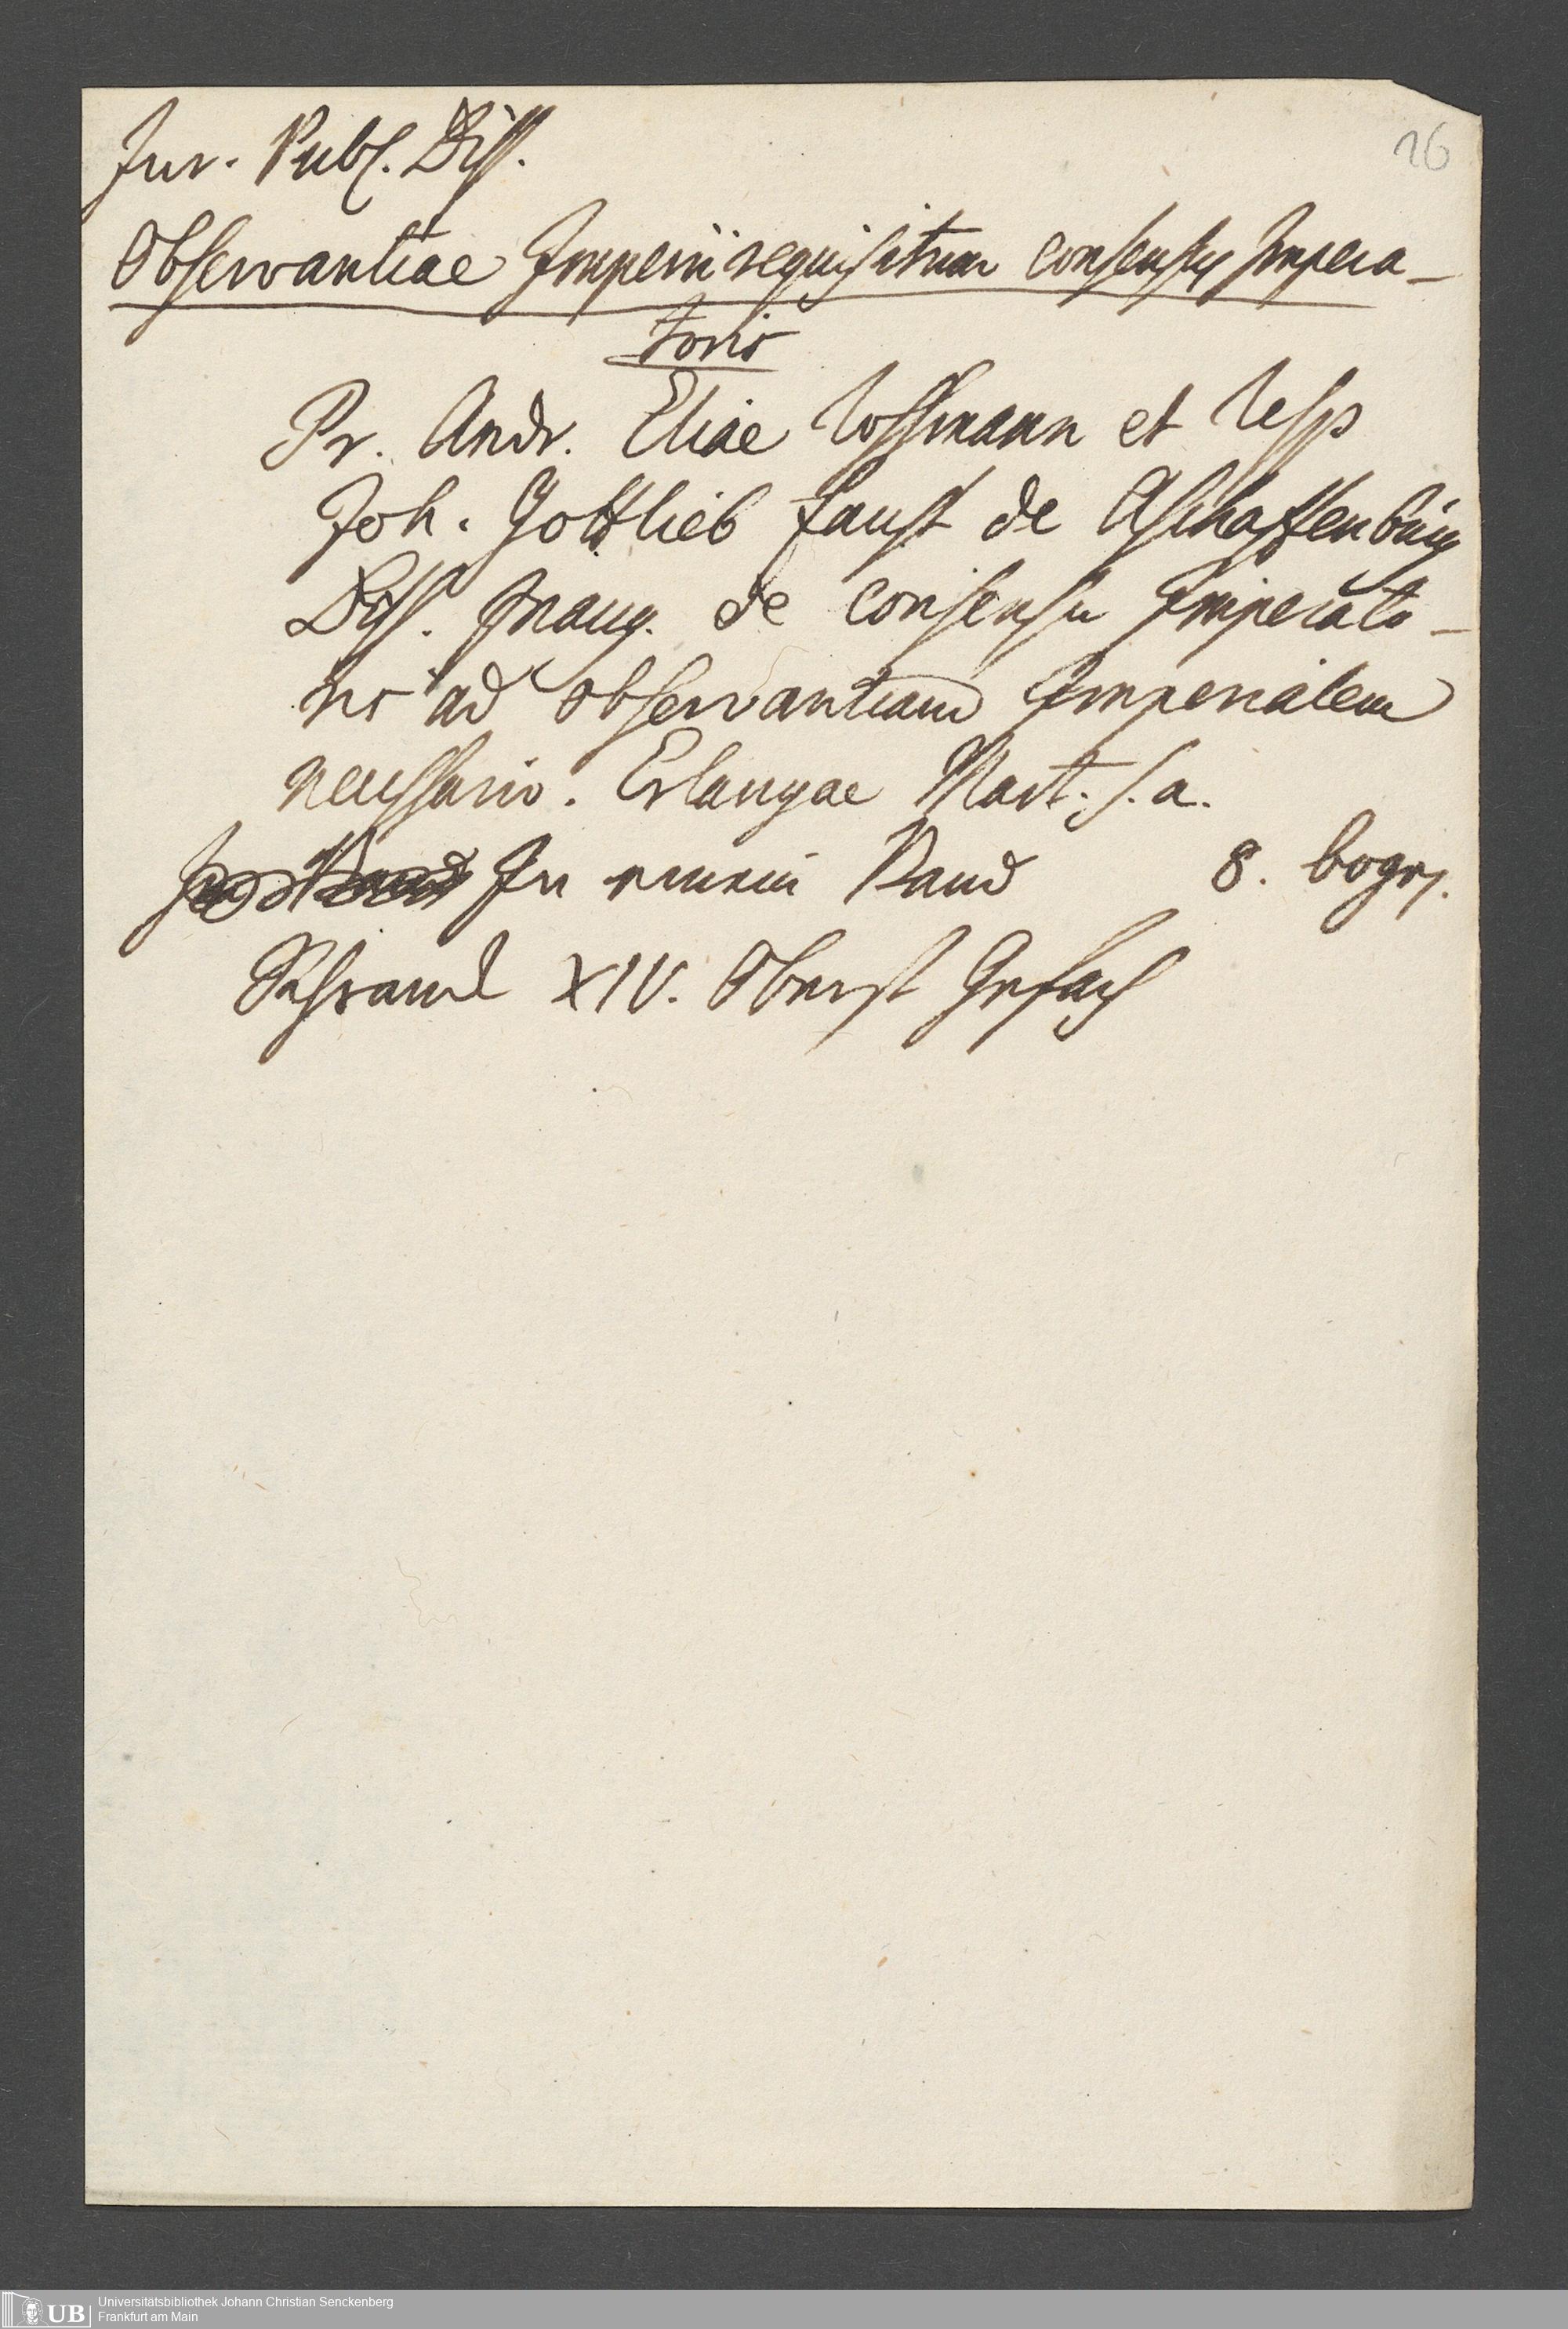 26
Jur. Publ. Diss.
Observantiae Imperii requisitum consensus Impera-
toris
Pr. Andr. Eliae Rossmann et Resp
Joh. Gottlieb Faust de Aschaffenburg
Diss. Inaug. de consensu Imperato-
ris ad observantiam Imperialem
necessario. Erlangae Mart. s. a.
In einem Band 8. bogen.
Schrank XIV. Oberst Gefach
UB Universitätsbibliothek Johann Christian Senckenberg
Frankfurt am Main